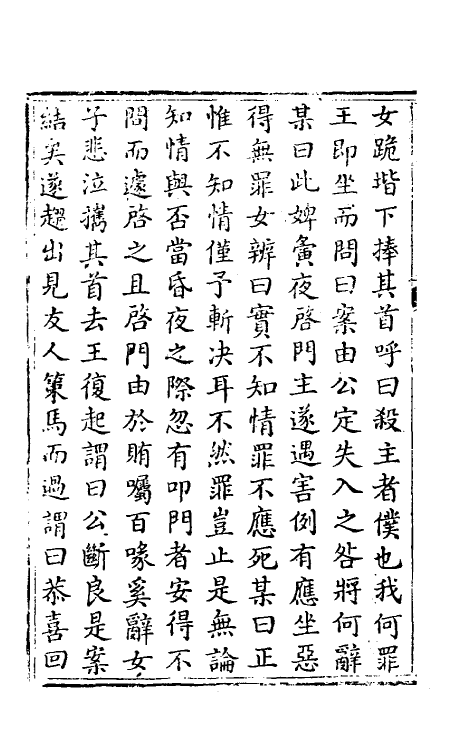 女跪堦下捧其首呼曰殺主者僕也我何罪
王即坐而問曰案由公定失入之咎將何辭
某曰此婢夤夜啓門主遂遇害例有應坐惡
得無罪女辨曰實不知情罪不應死某曰正
惟不知情僅予斬决耳不然罪豈止是無論
知情與否當昏夜之際忽有叩門者安得不
問而遽啓之且啓門由於賄囑百喙奚辭女
子悲泣擕其首去王復起謂曰公斷良是案
結矣遂趨出見友人策馬而過謂曰恭喜回